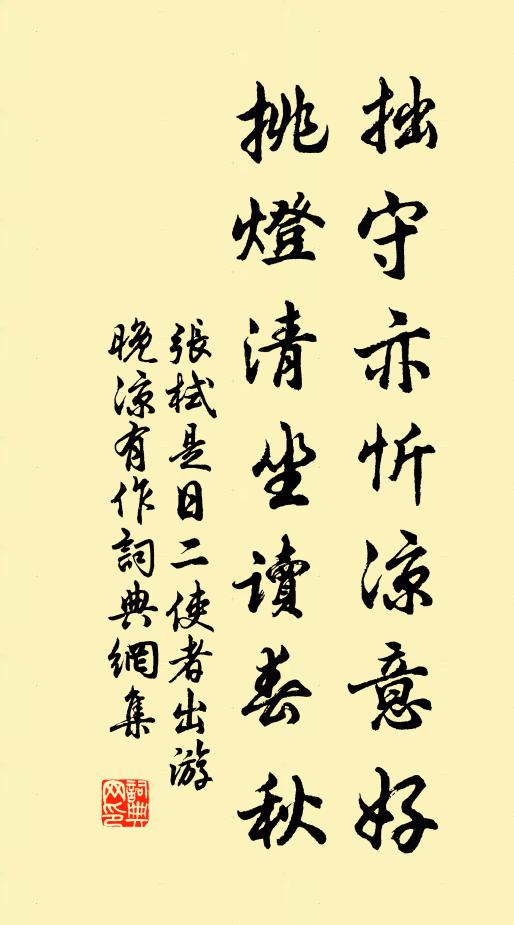 拙守亦忻凉意好
挑燈清坐讀春秋
張栻是日二使者出游
晚凉有作詞典網集
詞典
网印